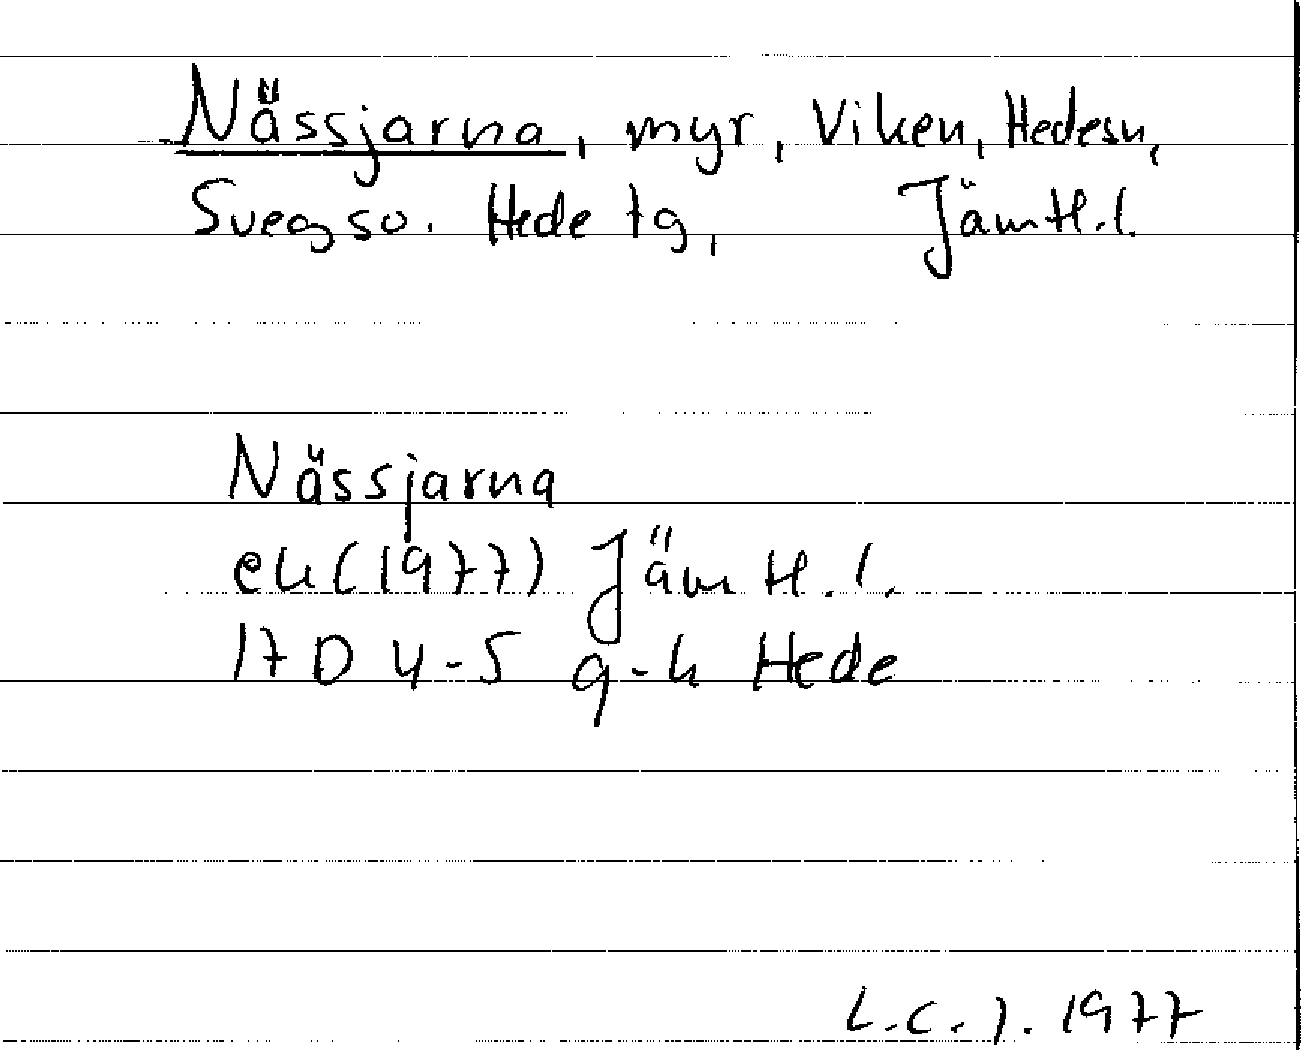 Nässjarna, myr, Viken, Hedesn,
Sveg so. Hede tg, Jämtl.l.
Nässjarna
ek(1977) Jämtl.l.
17D 4-5 g-h Hede
L.C.J. 1977